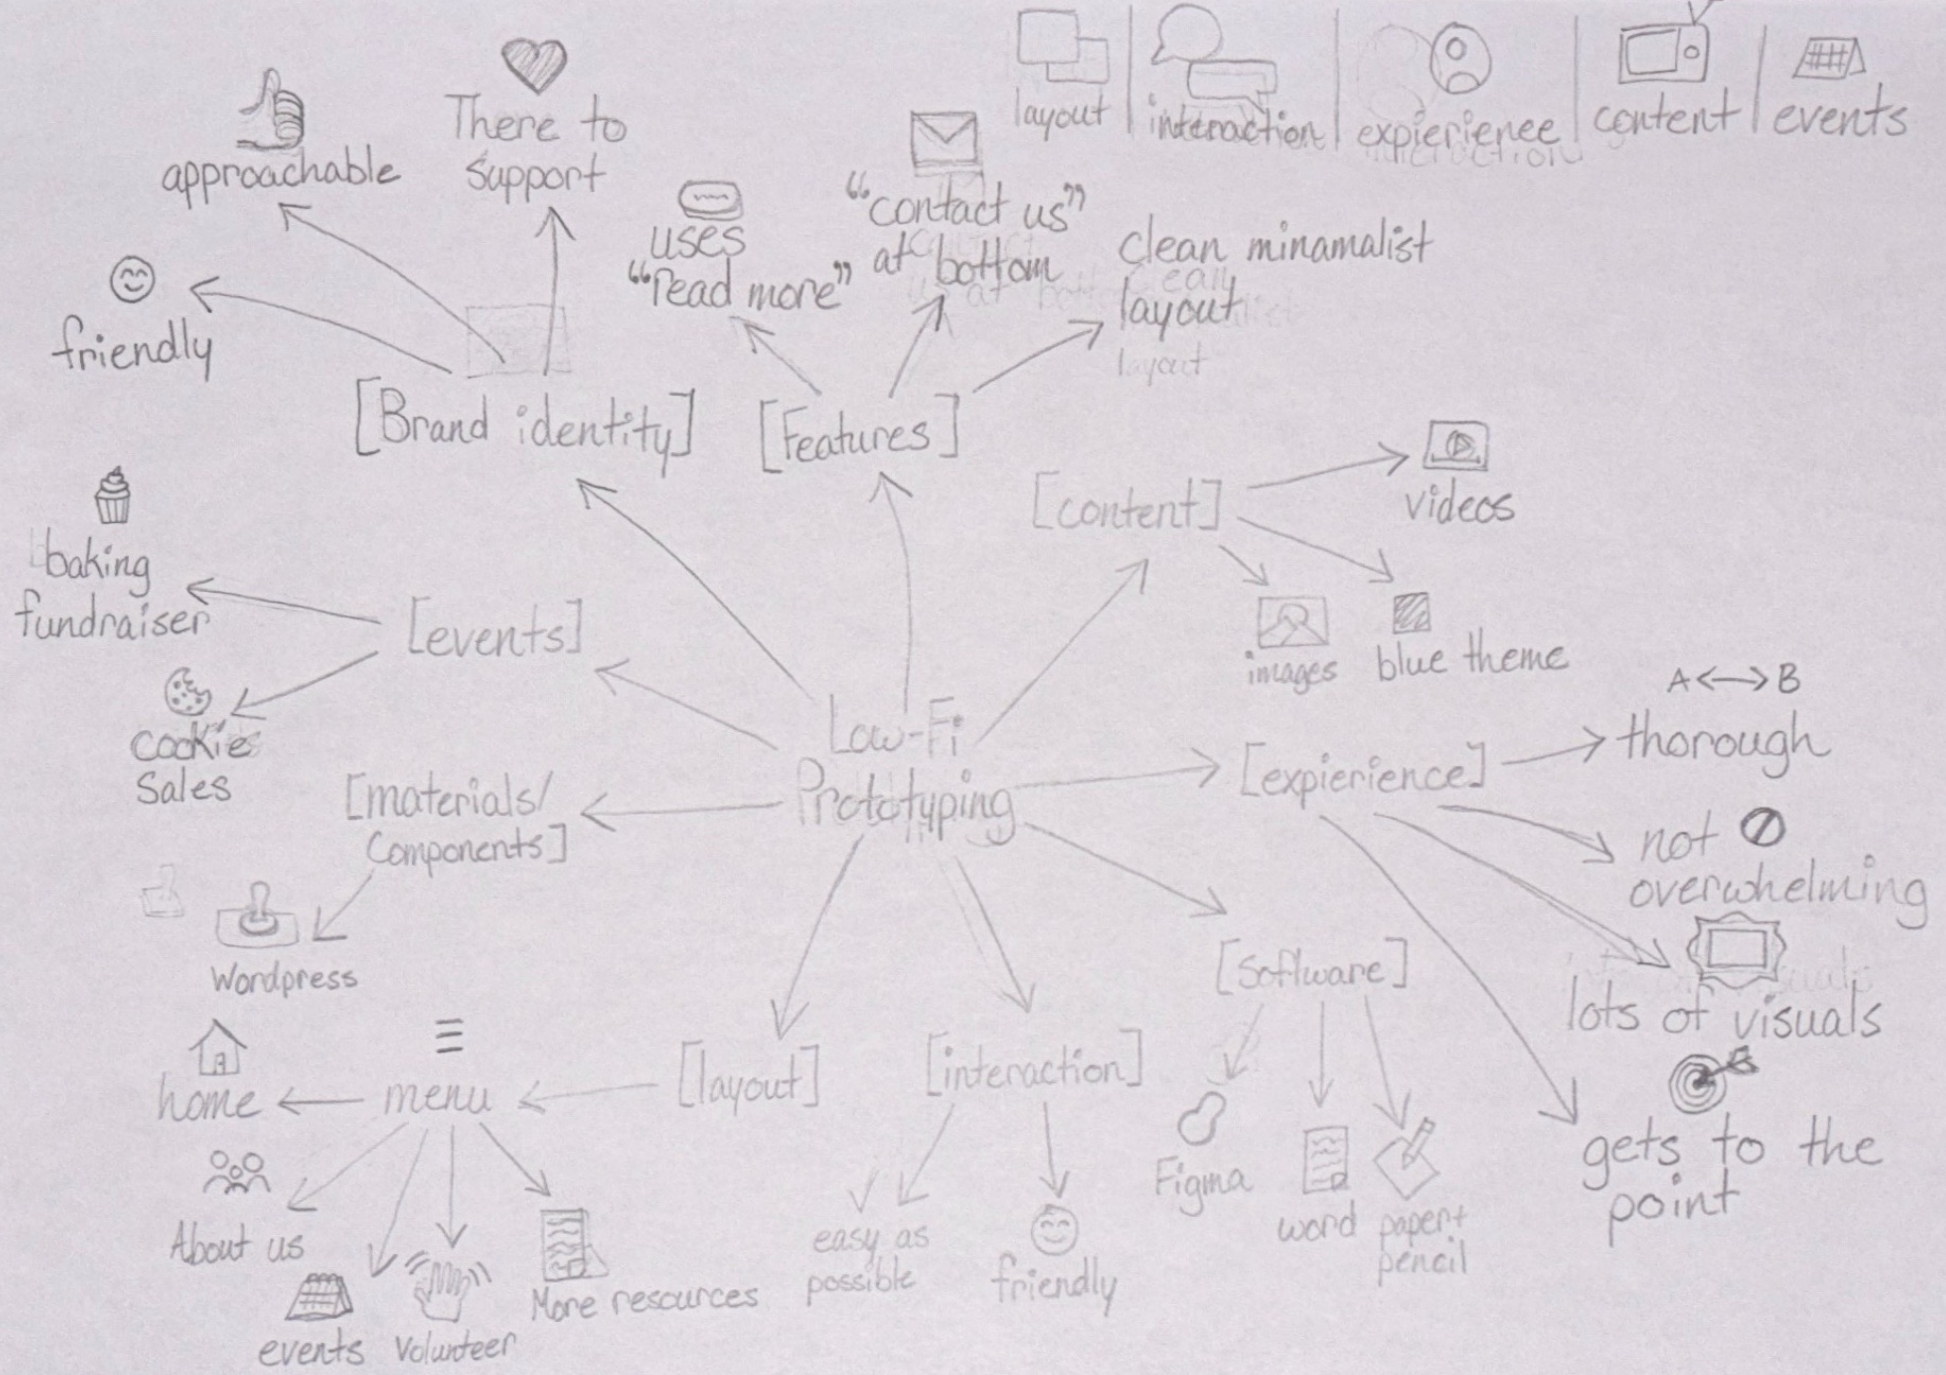 layout
interaction
expierience
content
events
approachable
There to
Support
friendly
uses
“read more”
“contact us”
at bottom
clean minamalist
layout
layout
[Brand identity]
[Features]
[content]
videos
images
blue theme
baking
fundraiser
[events]
cookie
Sales
Low-Fi
Prototyping
[materials/
Components]
Wordpress
[expierience]
A B
thorough
not
overwhelming
lots of visuals
gets to the
point
[Software]
Figma
word
paper+
pencil
[interaction]
easy as
possible
friendly
[layout]
menu
home
About us
events
Volunteer
More resources